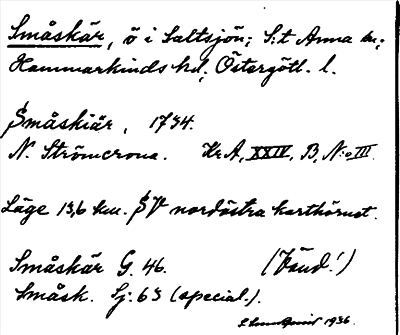 Småskär, ö i Saltsjön; S:t Anna sn;
Hammarkinds hd; Östergötl. l.
Småskiär, 1734.
N. Strömcrona. Kr A, XXIV, B, N:o III.
Läge 13,6 km. SV nordöstra karthörnet.
Småskär G. 46. (Vänd!)
Småsk. Sj. 63 (special.).
1936.